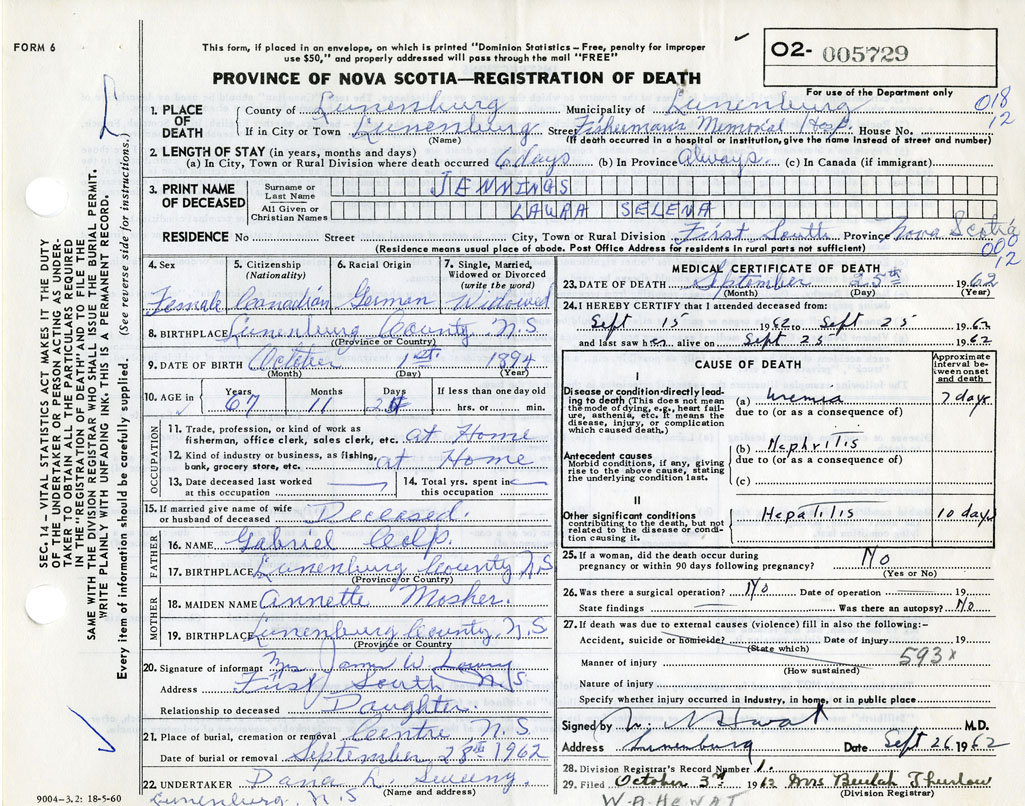 FORM 6
This form, if placed in an envelope, on which is printed "Dominion Statistics – Free, penalty for improper
use $50," and properly addressed will pass through the mail "FREE"
PROVINCE OF NOVA SCOTIA—REGISTRATION OF DEATH
O2- 005729
For use of the Department only
018
12
1. PLACE OF DEATH
County of Lunenburg Municipality of Lunenburg
If in City or Town Lunenburg Street Fisherman's Memorial Hosp. House No.
(Name) (If death occurred in a hospital or institution, give the name instead of street and number)
2. LENGTH OF STAY (in years, months and days)
(a) In City, Town or Rural Division where death occurred 6 days (b) In Province Always. (c) In Canada (if immigrant)
3. PRINT NAME OF DECEASED
Surname or Last Name JENNINGS
All Given or Christian Names LAURA SELENA
RESIDENCE No Street City, Town or Rural Division First South Province Nova Scotia
(Residence means usual place of abode. Post Office Address for residents in rural parts not sufficient)
000
12
4. Sex 5. Citizenship (Nationality) 6. Racial Origin 7. Single, Married, Widowed or Divorced (write the word)
Female Canadian German Widowed
8. BIRTHPLACE Lunenburg County N.S
(Province or Country)
9. DATE OF BIRTH October 1st 1894
(Month) (Day) (Year)
10. AGE in Years Months Days If less than one day old
67 11 hrs. or min.
OCCUPATION
11. Trade, profession, or kind of work as fisherman, office clerk, sales clerk, etc. at Home
12. Kind of industry or business, as fishing, bank, grocery store, etc. at Home
13. Date deceased last worked at this occupation
14. Total yrs. spent in this occupation
15. If married give name of wife or husband of deceased Deceased.
FATHER
16. NAME Gabriel Colp.
17. BIRTHPLACE Lunenburg County N.S
(Province or Country)
MOTHER
18. MAIDEN NAME Annette Mosher.
19. BIRTHPLACE Lunenburg County, N.S
(Province or Country)
20. Signature of informant Mrs James W.
Address First South N.S
Relationship to deceased Daughter.
21. Place of burial, cremation or removal Centre N.S
Date of burial or removal September 28th 1962
22. UNDERTAKER Dana L. Sweeny
(Name and address)
Lunenburg, N.S
9004-3.2: 18-5-60
MEDICAL CERTIFICATE OF DEATH
23. DATE OF DEATH September 25th 1962
(Month) (Day) (Year)
24. I HEREBY CERTIFY that I attended deceased from:
Sept 15 1962 to Sept 25 1962
and last saw her alive on Sept 25 1962
CAUSE OF DEATH
Approximate interval between onset and death
I
Disease or condition directly leading to death (This does not mean the mode of dying, e.g., heart failure, asthenia, etc. It means the disease, injury, or complication which caused death.)
(a) Uremia 7 days
due to (or as a consequence of)
Antecedent causes
Morbid conditions, if any, giving rise to the above cause, stating the underlying condition last.
(b) Nephritis
due to (or as a consequence of)
(c)
II
Other significant conditions contributing to the death, but not related to the disease or condition causing it.
Hepatitis 10 days
25. If a woman, did the death occur during pregnancy or within 90 days following pregnancy? No
(Yes or No)
26. Was there a surgical operation? No Date of operation 19
State findings Was there an autopsy? No
27. If death was due to external causes (violence) fill in also the following:-
Accident, suicide or homicide? Date of injury 19
(State which)
Manner of injury 593x
(How sustained)
Nature of injury
Specify whether injury occurred in industry, in home, or in public place
Signed by Hewat M.D.
Address Lunenburg Date Sept 26 1962
28. Division Registrar's Record Number 1.
29. Filed October 3rd 1962 Mrs Beulah Thurlow
(Division Registrar)
W.A. HEWAT
SEC. 14 – VITAL STATISTICS ACT MAKES IT THE DUTY
OF THE UNDERTAKER OR PERSON ACTING AS UNDER-
TAKER TO OBTAIN ALL THE PARTICULARS REQUIRED
IN THE "REGISTRATION OF DEATH" AND TO FILE THE
SAME WITH THE DIVISION REGISTRAR WHO SHALL ISSUE THE BURIAL PERMIT.
WRITE PLAINLY WITH UNFADING INK. THIS IS A PERMANENT RECORD.
Every item of information should be carefully supplied. (See reverse side for instructions.)